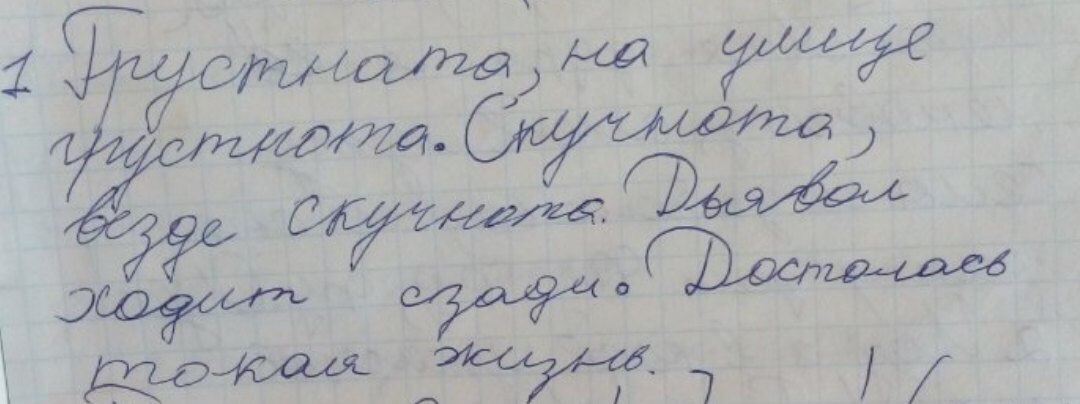 1 Грустната, на улице
грустнота. Скучнота,
везде скучнота. Дьявол
ходит сзади. Досталась
такая жизнь.